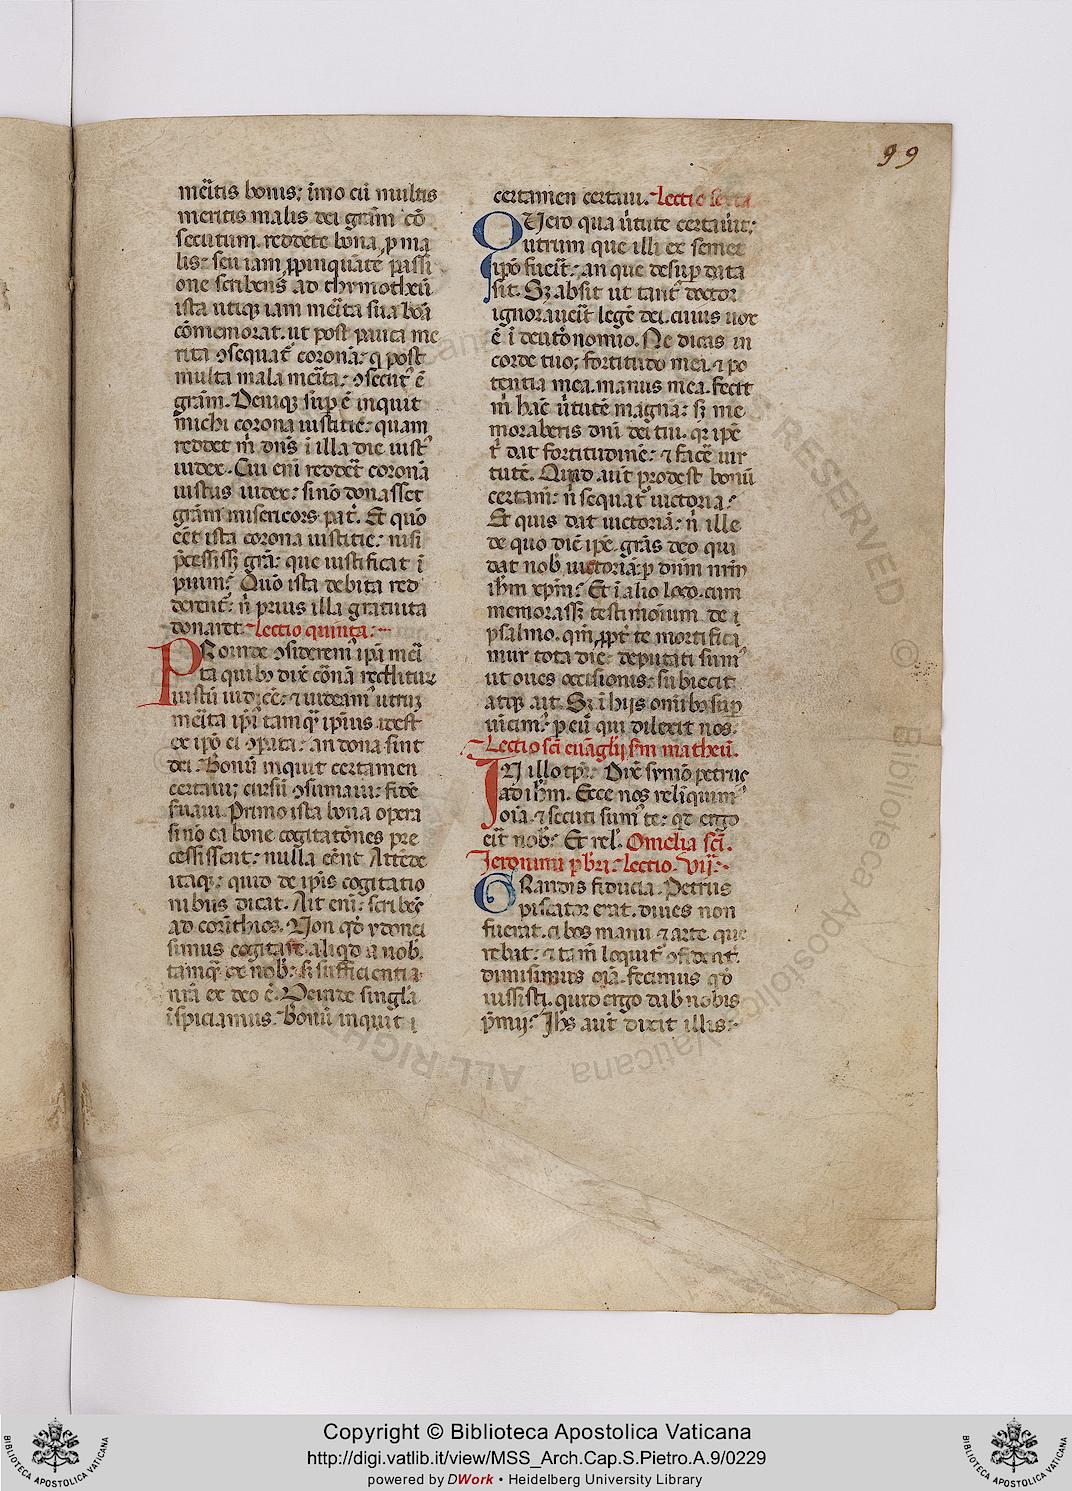 99
mei̅tis bonis; i̅mo cu̅ multis
meritis malis dei gra̅m co̅
secutum. reddete bona p̲ ma
lis: seu iam p̲pinqua̅te passi
one scribens ad thymotheu̅
ista utiq; iam mei̅ta sua bo̅a
co̅memorat. ut post pauca me
rita ꝯsequat᷑ corona̅: q̲ post
multa mala mei̅ta: ꝯsecut᷑ e̅
gra̅m. Deniq; sup̲ e̅ inquit
michi corona iustitie: quam
reddet m̅ dn̅s i̅ illa die iust᷑
iudex. Cui eni̅ reddet̅ corona̅
iustus iudex: si no̅ donasset
gra̅m misericors pat̅. Et quo̅
ee̅t ista corona iustitie: nisi
p̅cessiss; gra̅: que iustificat i̅
pium: Quo̅ ista debita red
derent᷑: n̅ prius illa gratuita
donaret. Lectio quinta:
PRoinde ꝯsiderem᷑ ip̅a mei̅
ta quib; dix̅ co̅na̅ reddituꝝ
iustu̅ iudice̅: ⁊ uideam᷑ utruꝫ
mei̅ta ip̅i᷑ tamq̅ ip̅ius. idest
ex ip̅o ei ꝯpata: an dona sint
dei. Bonu̅ inquit certamen
certaui; cursu̅ ꝯsumaui: fide̅
s̅uaui. Primo ista bona opera
si no̅ ea bone cogitato̅nes pre
cessissent: nulla ee̅nt. Atte̅de
itaq;: quid de ip̅is cogitatio
nibus dicat. Ait eni̅: scribe̅s
ad cori̅thios. Non qd̅ ydonei
simus cogitare aliq̇d a nob̅.
tamq̅ ex nob̅: s; sufficientia
nr̅a ex deo e̅. Deinde singl̅a
i̅spiciamus. Bonu̅ inquit i
certamen certaui. Lectio sexta
QUero qua u̅tute certau̅it;
utrum que illi ex semet
ip̅o fuei̅t: an que desup̲ data
sit. Sꝫ absit ut tant᷑ doctor
ignorauei̅t lege̅ dei. cuius uox
e̅ i̅ deut̅onomio. Ne dicas in
corde tuo; fortitudo mea. ⁊ po
tentia mea. manus mea. fecit
m̅ ha̅c u̅tute̅ magna̅: sꝫ me
moraberis dn̅i dei tui. qꝛ ip̅e
t᷑ dat fortitudine̅: ⁊ face̅ uir
tute̅. Quid aut̅ prodest bonu̅
certam̅: n̅ sequat᷑ uictoria:
Et quis dat uictoria̅: n̅ ille
de quo dic̅ ip̅e. gra̅s deo qui
dat nob̅ uictoria̅: p̲ dn̅m nr̅m
ih̅m xp̅m: Et i̅ alio loco. cum
memorass; testimonium de i
psalmo. qm̅ p̲pt̅ te mortifica
mur tota die: deputati sum᷑
ut oues occisionis: subiecit
atq; ait. Sꝫ i̅ hijs om̅ib; sup̲
ui̅cim᷑: p̲ eu̅ qui dilexit nos.
Lectio sc̅i eua̅glij. s̅m matheu̅.
IN illo tp̅r: Dix̅ symo̅ petrus
ad ih̅m. Ecce nos reli̅quim᷑
oi̅a. ⁊ secuti sum᷑ te: qd̅ ergo
ei̅t nob̅: Et rel̅. Omelia sc̅i.
Jeronimi p̅bri: Lectio. Vij:
GRandis fiducia. Petrus
piscator erat. diues non
fuerat. cibos manu ⁊ arte que
rebat: ⁊ tam̅ loquit᷑ ꝯfident᷑:
dimisimus oi̅a. fecimus qd̅
iussisti. quid ergo dab̅ nobis
p̅mij: Ih̅s aut̅ dixit illis:
Copyright © Biblioteca Apostolica Vaticana
http://digi.vatlib.it/view/MSS_Arch.Cap.S.Pietro.A.9/0229
powered by DWork • Heidelberg University Library
BIBLIOTECA APOSTOLICA VATICANA
BIBLIOTECA APOSTOLICA VATICANA
ALL RIGHTS RESERVED © Biblioteca Apostolica Vaticana